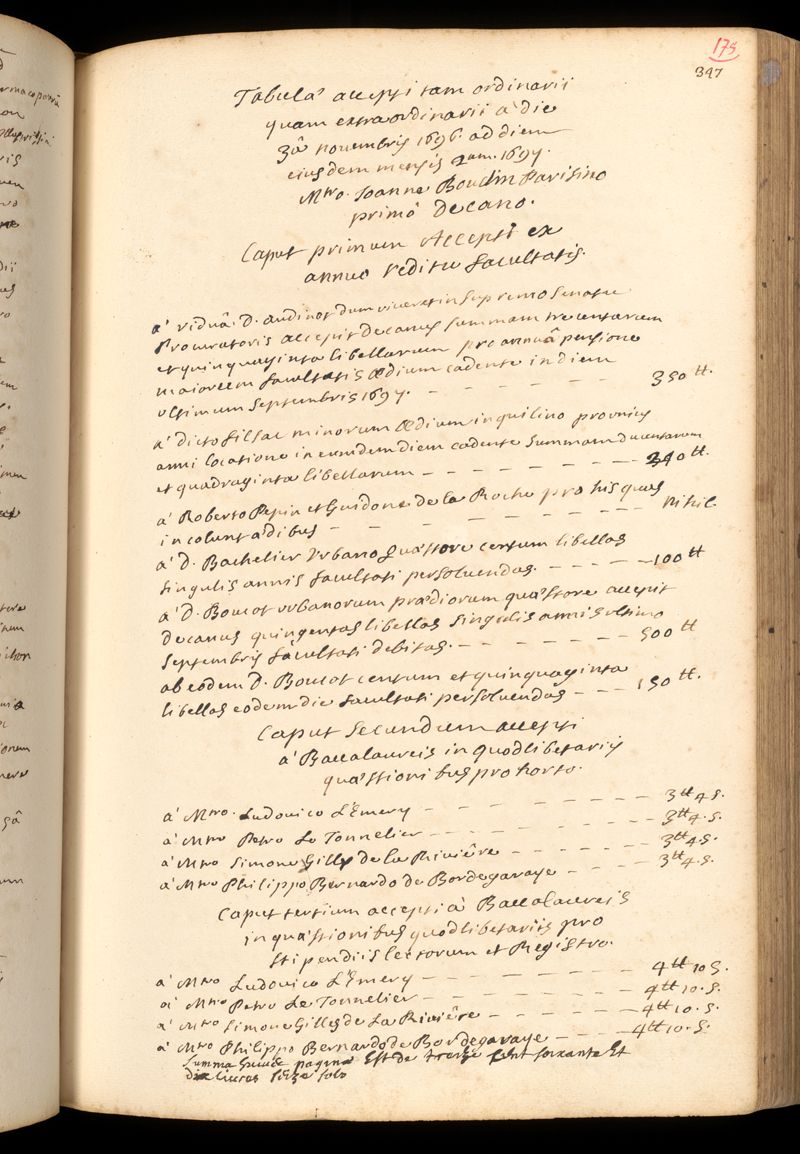 175
347
Tabula accepti tam ordinarii
quam extraordinarii a die
3â novembris 1696. ad diem
eiusdem mensis 2am. 1697.
Mtro. Joanne Boudin Parisino
primô Decano.
Caput primum Accepti ex
annuo reditu facultatis.
a' viduâ D. audinot dum viveret in supremo senatu
Procuratoris accepit Decanus summam trecentarum
et quinquaginta libellarum pro annuâ pensione
maiorum facultatis Ædium cadente in diem
ultimum septembris 1697. 350 tt.
a' dicto minorum Ædium inquilino pro unius
anni locatione in eumdem diem cadente summam ducentarum
et quadraginta libellarum 240 tt.
a' Roberto Pepin et Guidone de la Roche pro his quas
incolunt ædibus nihil.
a' D. Bachelier Urbano quæstore centum libellas
singulis annis facultati persolvendas. 100 tt
a' D. Boucot urbanorum prædiorum quæstore accepit
decanus quingentas libellas singulis annis ultimo
septembris facultati debitas. 500 tt
ab eodem D. Boucot centum et quinquaginta
libellas eodem die facultati persolvendas 150 tt.
Caput secundum accepti
a' Baccalaureis in quodlibetariis
quæstionibus pro horto.
a' Mtro. Ludovico L'Emery 3tt 4 s.
a' Mtro Petro Le Tonnelier 3tt 4. s.
a' Mtro Simone Gilly de la Riviêre 3tt 4. s.
a' Mtro Philippo Bernardo de Bordegaraye 3tt 4. s.
Caput tertium accepti a' Baccalaureis
in quæstionibus quodlibetariis pro
stipendiis lectorum et Registro.
a' Mtro Ludovico L'Emery 4tt 10 s.
a' Mtro Petro Le Tonnelier 4tt 10. s.
a' Mtro Simone Gilles de La Riviêre 4tt 10. s.
a' Mtro Philippo Bernardo de Bordegaraye 4tt 10. s.
summa huiusce pagina Est de treize cent soixante Et
dix livres seize sols